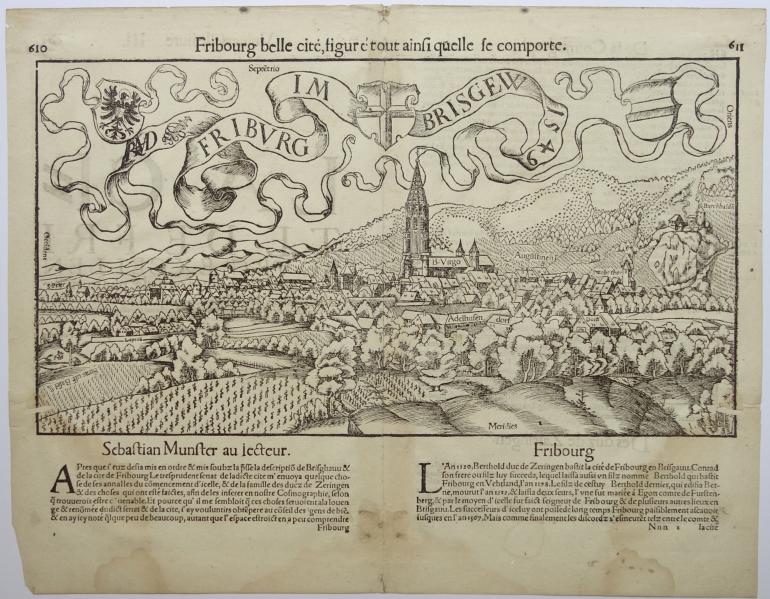 610
Fribourg belle cité, figuré tout ainsi quelle se comporte.
611
Septētrio
FRIBVRG
IM
BRISGEW
1549
Oriens
B. Virgo
Augustiners
Adelhusen
dorf
Meridies
Sebastian Munster au lecteur.
APres que i'euz desia mis en ordre & mis soubz la p̄sse la descriptiō de Brisghauu &
de la cité de Fribourg Le tresprudent senat de ladicte cité m'enuoya quelque chose
de ses annalles du cōmencement d'icelle, & de la famille des ducz de Zeringen
& des choses qui ont esté faictes, afin de les inserer en nostre Cosmographie, selon
q̄ trouueroie estre cōuenable. Et pource qu'il me sembloit q̄ ces choses seruoient a la louen
ge & renōmée dudict senat & de la cité, i'ay voulu
& en ay icy noté q̄lque peu de beaucoup, autant que l'espace estroict en a peu comprendre
Fribourg
Fribourg
L'An 1120. Berthold duc de Zeringen bastit la cité de Fribourg en Brisgauu. Conrad
son frere ou filz luy succeda, lequel laissa aussi vn filz nommé Berthold qui bastit
Fribourg en Vchtland, l'an 1178. Le filz de cestuy Berthold dernier, qui edifia Ber-
ne, mourut l'an 1212, & laissa deux seurs, l'vne fut mariée à Egon comte de Fursten-
berg, & par le moyen d'icelle fut faict seigneur de Fribourg & de plusieurs autres lieux en
Brisgauu. Les successeurs d'iceluy ont possedé long temps Fribourg paisiblement ascauoir
iusques en l'an 1367. Mais comme finalement les discordz s'esmeurēt telz entre le comte &
Nnn 2 la cité